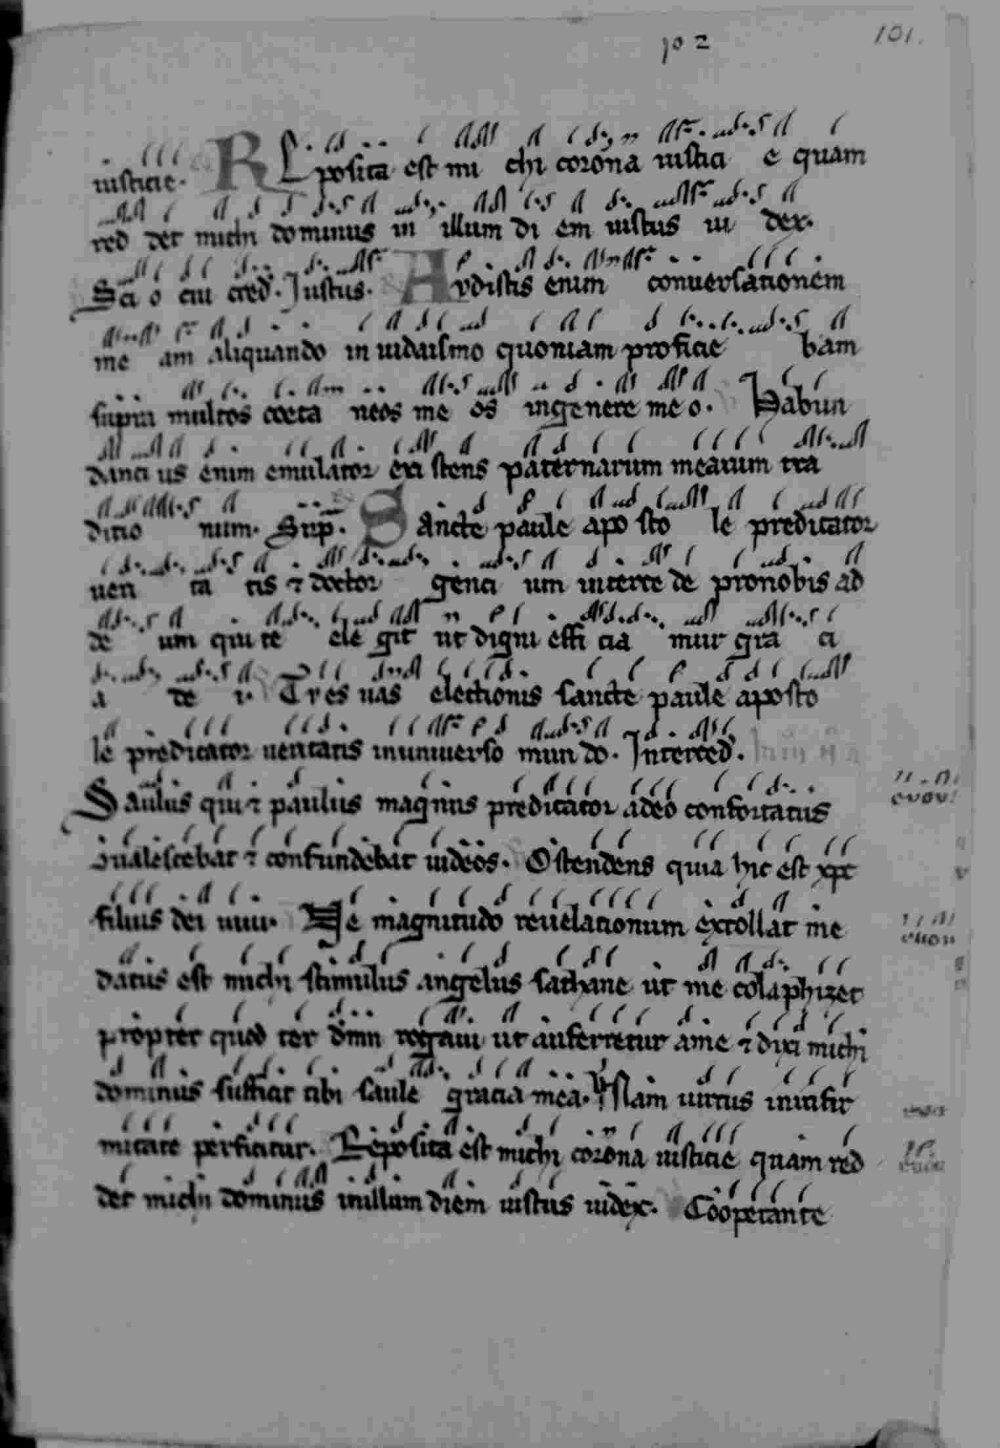 102 101.
iusticie. R Reposita est mi chi corona iusticie quam
red det michi dominus in illum di em iustus iu dex.
Scio cui cred. Iustus. Audistis enim conuersationem
me am aliquando in iudaismo quoniam proficie bam
supra multos coeta neos me os in genere me o. Habun
danci us enim emulator exi stens paternarum mearum tra
ditio num. Sup. Sancte paule apo sto le predicator
ueri ta tis & doctor genci um interce de pro nobis ad
de um qui te ele git ut digni effi cia mur gra ci
a de i. Tu es uas electionis sancte paule aposto
le predicator ueritatis in uniuerso mun do. Interced.
Saulus qui & paulus magnus predicator adeo confortatus
euou
inualescebat & confundebat iudeos. Ostendens quia hic est xpc
filius dei uiui. Ne magnitudo reuelationum extollat me
euou
datus est michi stimulus angelus sathane ut me colaphizet
propter quod ter dmn rogaui ut auferretur a me & dixit michi
dominus sufficit tibi saule gracia mea. Nam uirtus in infir
mitate perficitur. Reposita est michi corona iusticie quam red
det michi dominus in illum diem iustus iudex. Cooperante